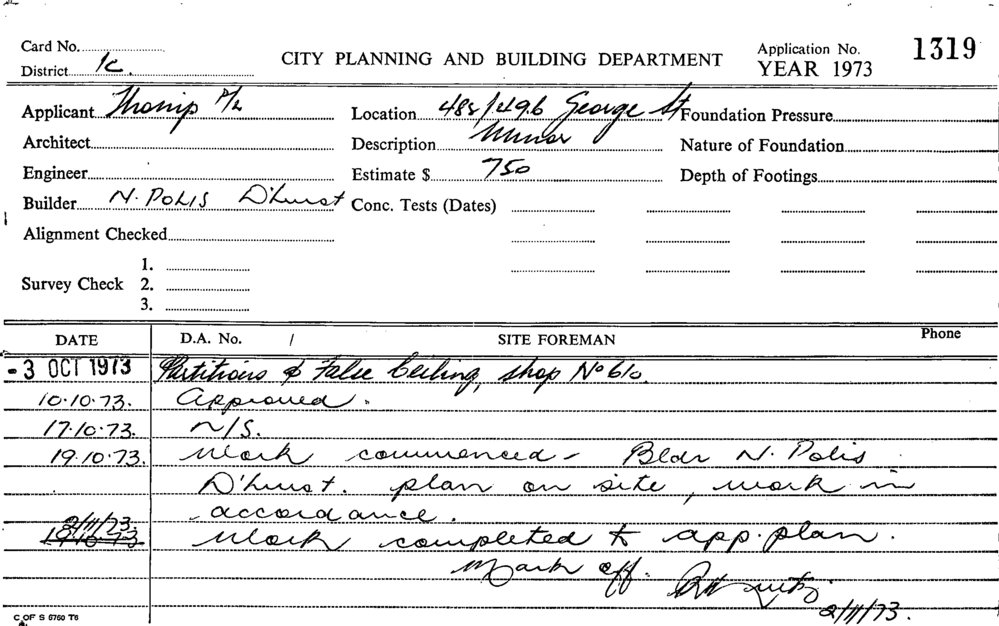 Card No.
CITY PLANNING AND BUILDING DEPARTMENT
Application No. 1319
District 1c.
YEAR 1973
Applicant P/L Location 485/496 George St Foundation Pressure
Architect Description Minor Nature of Foundation
Engineer Estimate $ 750 Depth of Footings
Builder N. POLIS D'hurst Conc. Tests (Dates)
Alignment Checked
1.
Survey Check 2.
3.
DATE D.A. No. / SITE FOREMAN Phone
-3 OCT 1973 Partitions & False Ceiling, shop No 610.
10.10.73. Approved.
17.10.73. N/S.
19.10.73. Work commenced - Bldr N. Polis
D'hurst. plan on site, work in
accordance.
2/11/73. Work completed to app. plan.
Mark off.
2/11/73.
C OF S 5750 T6